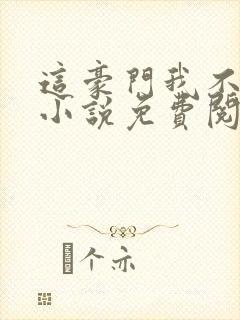 這豪門我不
小說免費閱
个亦